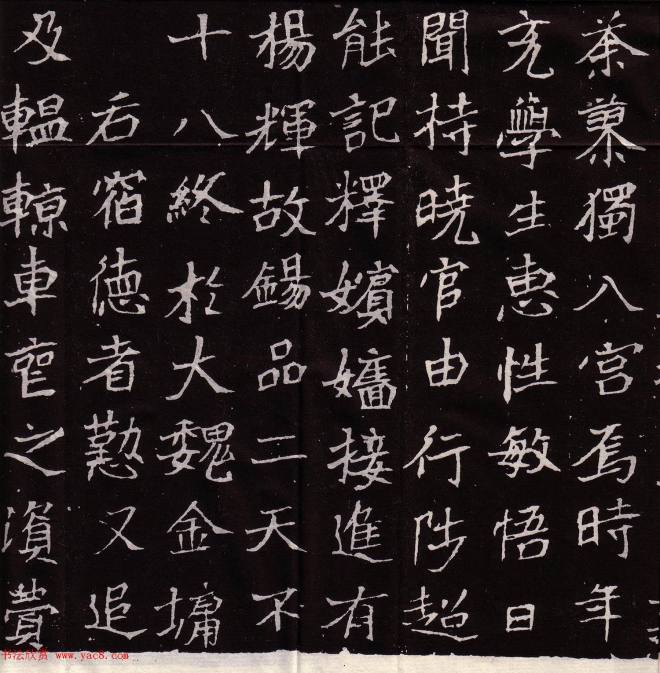 茶棄獨入宮焉時年
充學生惠性敏悟日
聞持曉官由行陟超
能記釋嬪嬙接進有
楊輝故錫品二天不
十八終於大魏金墉
右宿德者懃又追
及轀輬車之費
书法欣赏 www.yac8.com